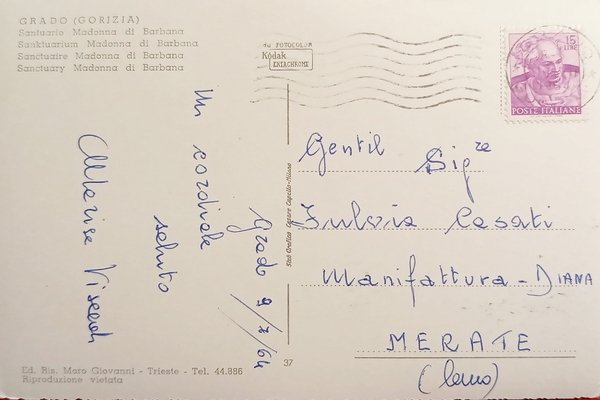 GRADO (GORIZIA)
Santuario Madonna di Barbana
Sanktuarium Madonna di Barbana
Sanctuaire Madonna di Barbana
Sanctuary Madonna di Barbana
da FOTOCOLOR
Kodak
EKTACHROME
15
LIRE
POSTE ITALIANE
Grado 9/7/64
Un cordiale
saluto
Gentil Sig.ra
Fulvia Casati
Manifattura - DIANA
MERATE
(Como)
Stab. Grafico Cesare Capello - Milano
37
Ed. Bis. Maro Giovanni - Trieste - Tel. 44.886
Riproduzione vietata